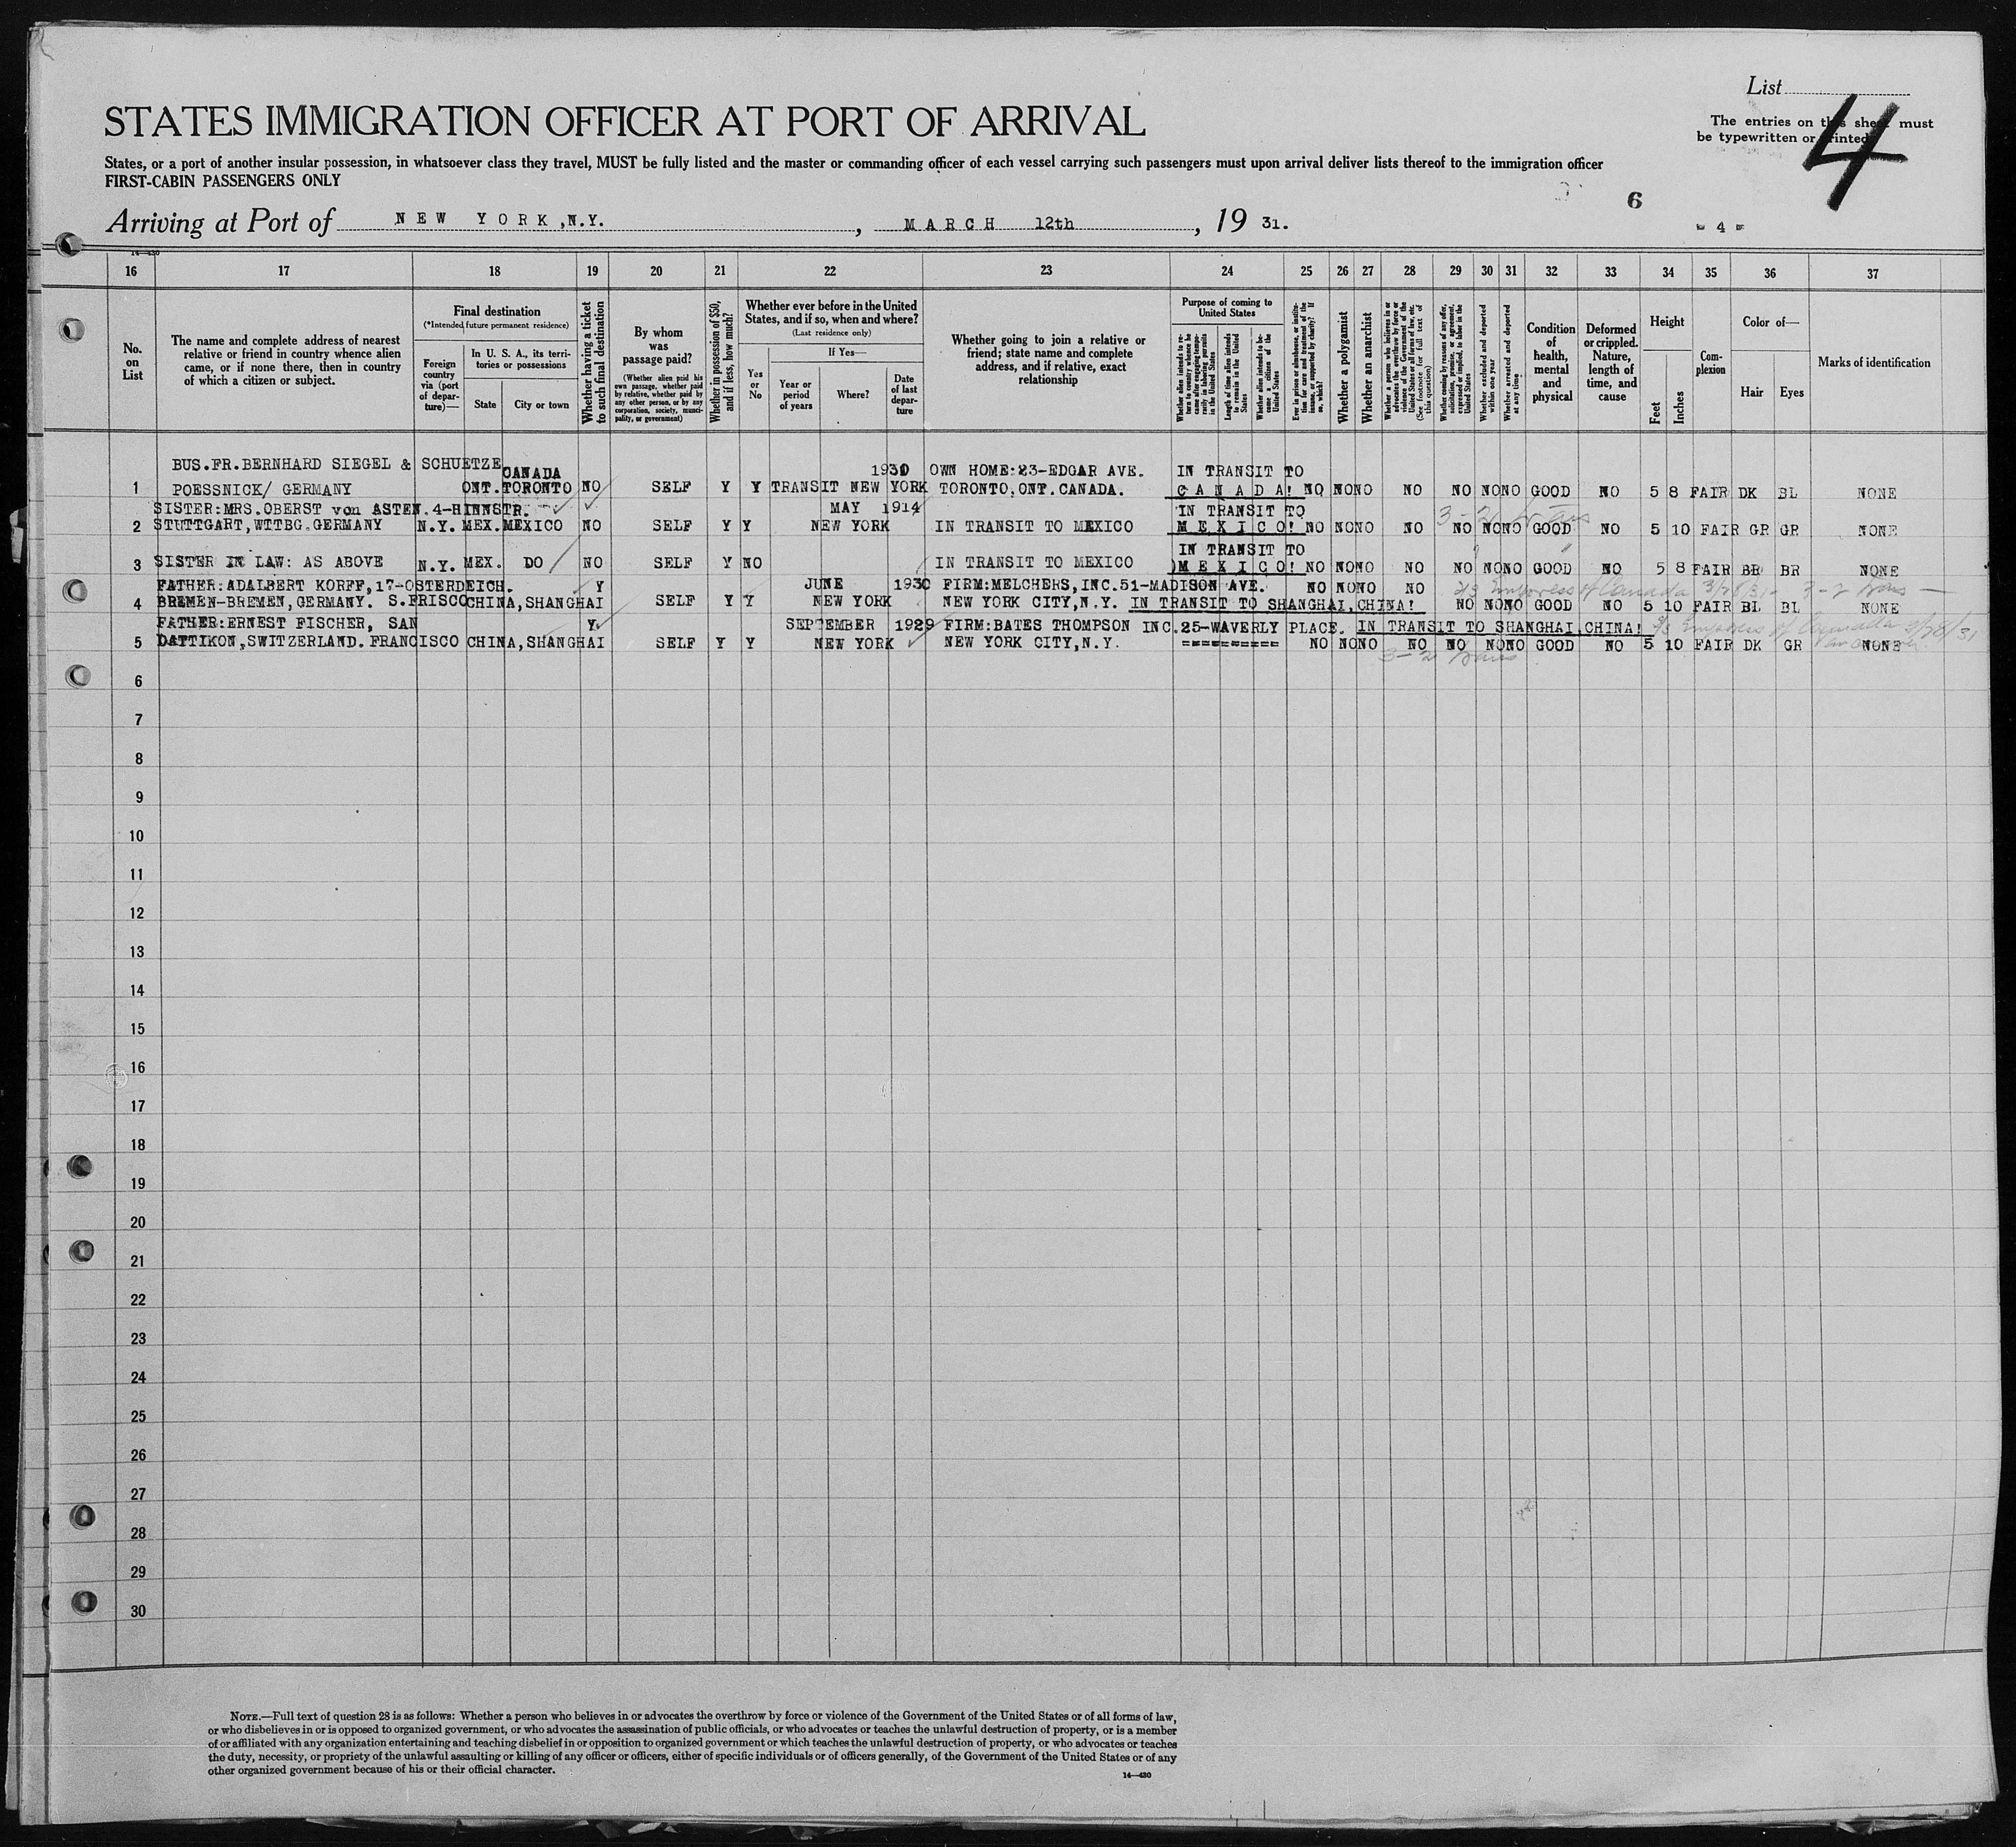 List
The entries on this sheet must
be typewritten or printed
4
STATES IMMIGRATION OFFICER AT PORT OF ARRIVAL
States, or a port of another insular possession, in whatsoever class they travel, MUST be fully listed and the master or commanding officer of each vessel carrying such passengers must upon arrival deliver lists thereof to the immigration officer
FIRST-CABIN PASSENGERS ONLY
6
Arriving at Port of NEW YORK, N.Y. , MARCH 12th , 19 31.
- 4 -
14—430
16 17 18 19 20 21 22 23 24 25 26 27 28 29 30 31 32 33 34 35 36 37
No. on List
The name and complete address of nearest relative or friend in country whence alien came, or if none there, then in country of which a citizen or subject.
Final destination
(*Intended future permanent residence)
Foreign country via (port of departure)—
In U. S. A., its territories or possessions
State
City or town
Whether having a ticket to such final destination
By whom was passage paid?
(Whether alien paid his own passage, whether paid by relative, whether paid by any other person, or by any corporation, society, municipality, or government)
Whether in possession of $50, and if less, how much?
Whether ever before in the United States, and if so, when and where?
(Last residence only)
Yes or No
If Yes—
Year or period of years
Where?
Date of last departure
Whether going to join a relative or friend; state name and complete address, and if relative, exact relationship
Purpose of coming to United States
Whether alien intends to return to country whence he came after engaging temporarily in laboring pursuits in the United States
Length of time alien intends to remain in the United States
Whether alien intends to become a citizen of the United States
Ever in prison or almshouse, or institution for care and treatment of the insane, or supported by charity? If so, which?
Whether a polygamist
Whether an anarchist
Whether a person who believes in or advocates the overthrow by force or violence of the Government of the United States or all forms of law, etc. (See footnote for full text of this question)
Whether coming by reasons of any offer, solicitation, promise, or agreement, expressed or implied, to labor in the United States
Whether excluded and deported within one year
Whether arrested and deported at any time
Condition of health, mental and physical
Deformed or crippled. Nature, length of time, and cause
Height
Feet
Inches
Complexion
Color of—
Hair
Eyes
Marks of identification
BUS.FR.BERNHARD SIEGEL & SCHUETZE CANADA 1930 OWN HOME:23-EDGAR AVE. IN TRANSIT TO
1 POESSNICK/ GERMANY ONT. TORONTO NO SELF Y Y TRANSIT NEW YORK TORONTO,ONT.CANADA. CANADA! NO NO NO NO NO NO NO GOOD NO 5 8 FAIR DK BL NONE
SISTER:MRS.OBERST von ASTEN.4-HINNSTR. MAY 1914 IN TRANSIT TO
2 STUTTGART,WTTBG.GERMANY N.Y. MEX. MEXICO NO SELF Y Y NEW YORK IN TRANSIT TO MEXICO MEXICO! NO NO NO NO NO NO NO GOOD NO 5 10 FAIR GR GR NONE
IN TRANSIT TO
3 SISTER IN LAW: AS ABOVE N.Y. MEX. DO NO SELF Y NO IN TRANSIT TO MEXICO MEXICO! NO NO NO NO NO NO NO GOOD NO 5 8 FAIR BR BR NONE
FATHER:ADALBERT KORFF,17-OSTERDEICH. Y JUNE 1930 FIRM:MELCHERS,INC.51-MADISON AVE. NO NO NO NO Empress of Canada 3/28/31
4 BREMEN-BREMEN,GERMANY. S.FRISCO CHINA,SHANGHAI SELF Y Y NEW YORK NEW YORK CITY,N.Y. IN TRANSIT TO SHANGHAI,CHINA! NO NO NO GOOD NO 5 10 FAIR BL BL NONE
FATHER:ERNEST FISCHER, SAN Y SEPTEMBER 1929 FIRM:BATES THOMPSON INC.25-WAVERLY PLACE. IN TRANSIT TO SHANGHAI,CHINA! Empress of Canada 3/28/31
5 DATTIKON,SWITZERLAND. FRANCISCO CHINA,SHANGHAI SELF Y Y NEW YORK NEW YORK CITY,N.Y. =========== NO NO NO NO NO NO NO GOOD NO 5 10 FAIR DK GR NONE
6
7
8
9
10
11
12
13
14
15
16
17
18
19
20
21
22
23
24
25
26
27
28
29
30
NOTE.—Full text of question 28 is as follows: Whether a person who believes in or advocates the overthrow by force or violence of the Government of the United States or of all forms of law,
or who disbelieves in or is opposed to organized government, or who advocates the assassination of public officials, or who advocates or teaches the unlawful destruction of property, or is a member
of or affiliated with any organization entertaining and teaching disbelief in or opposition to organized government or which teaches the unlawful destruction of property, or who advocates or teaches
the duty, necessity, or propriety of the unlawful assaulting or killing of any officer or officers, either of specific individuals or of officers generally, of the Government of the United States or of any
other organized government because of his or their official character.
14—430